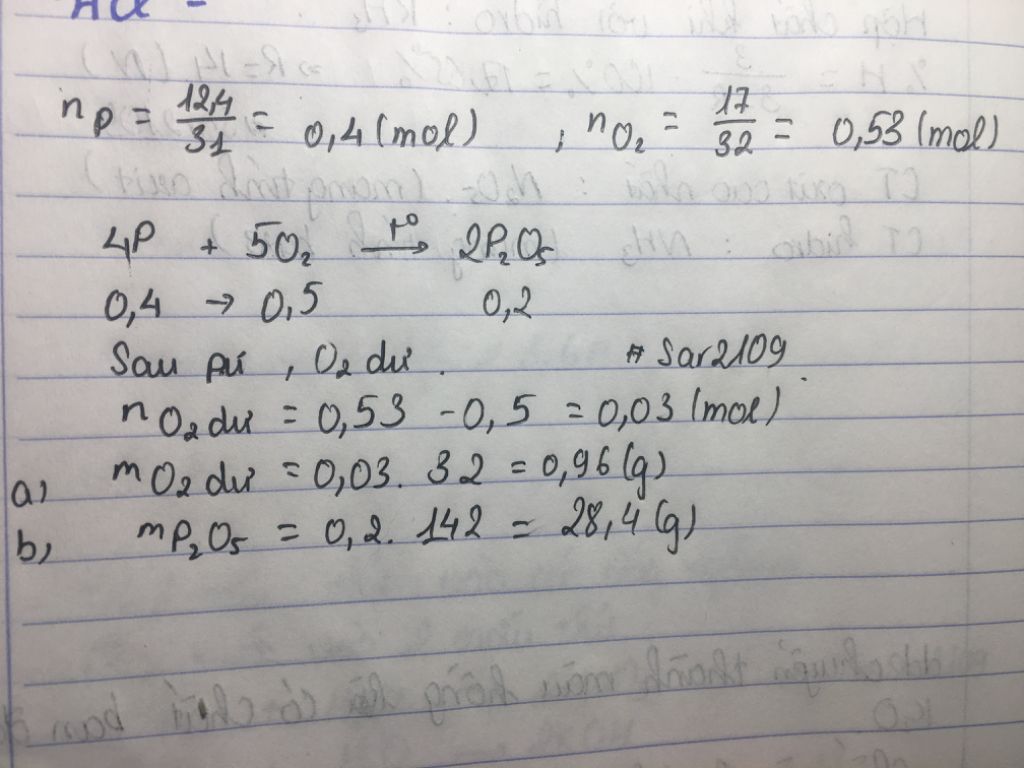 n P = 12,4/31 = 0,4 (mol) , n O₂ = 17/32 = 0,53 (mol)
4P + 5O₂ –t°→ 2P₂O₅
0,4 → 0,5 0,2
Sau pứ , O₂ dư . # Sar2109
n O₂ dư = 0,53 - 0,5 = 0,03 (mol)
a, m O₂ dư = 0,03. 32 = 0,96 (g)
b, m P₂O₅ = 0,2. 142 = 28,4 (g)